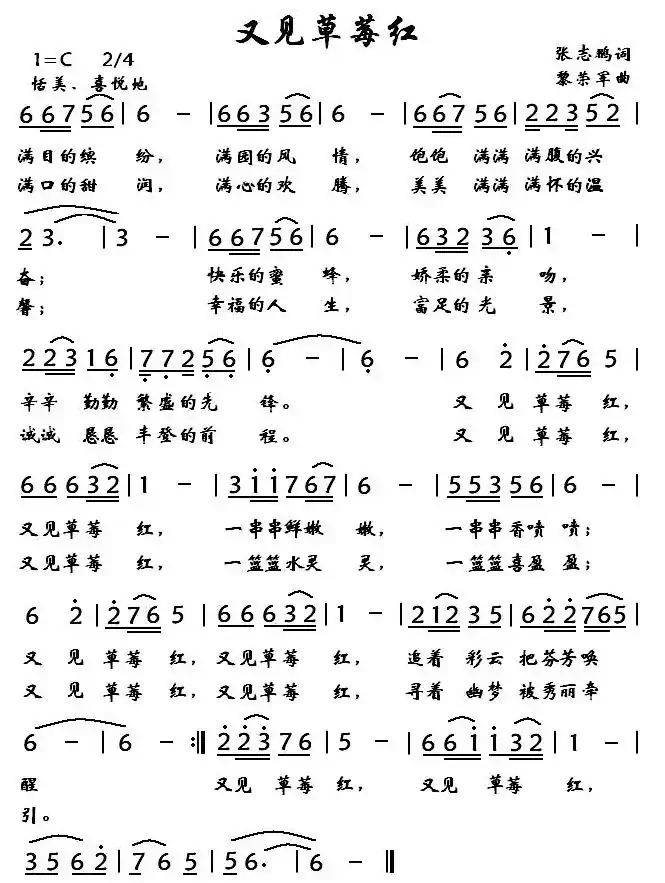 又见草莓红
1=C 2/4
张志鹏词
恬美、喜悦地
黎荣军曲
6 6 7 5 6 | 6 – | 6 6 3 5 6 | 6 – | 6 6 7 5 6 | 2 2 3 5 2 |
满目的缤 纷， 满园的风 情， 饱饱 满满 满腹的兴
满口的甜 润， 满心的欢 腾， 美美 满满 满怀的温
2 3. | 3 – | 6 6 7 5 6 | 6 – | 6 3 2 3 6̣ | 1 – |
奋； 快乐的蜜 蜂， 娇柔的亲 吻，
馨； 幸福的人 生， 富足的光 景，
2 2 3 1 6̣ | 7̣ 7̣ 2 5̣ 6̣ | 6̣ – | 6̣ – | 6 2̇ | 2̇ 7 6 5 |
辛辛 勤勤 繁盛的先 锋。 又 见 草莓 红，
诚诚 恳恳 丰登的前 程。 又 见 草莓 红，
6 6 6 3 2 | 1 – | 3 1̇ 1̇ 7 6 7 | 6 – | 5 5 3 5 6 | 6 – |
又见草莓 红， 一串串鲜嫩 嫩， 一串串香喷 喷；
又见草莓 红， 一篮篮水灵 灵， 一篮篮喜盈 盈；
6 2̇ | 2̇ 7 6 5 | 6 6 6 3 2 | 1 – | 2 1 2 3 5 | 6 2̇ 2̇ 7 6 5 |
又 见 草莓 红，又见草莓 红， 追着 彩云 把芬芳唤
又 见 草莓 红，又见草莓 红， 寻着 幽梦 被秀丽牵
6 – | 6 – :‖ 2̇ 2̇ 3̇ 7 6 | 5 – | 6 6 1̇ 1̇ 3 2 | 1 – |
醒 又见 草莓 红， 又见 草莓 红，
引。
3 5 6 2̇ | 2̇ 7 6 5 | 5 6. | 6 – ‖